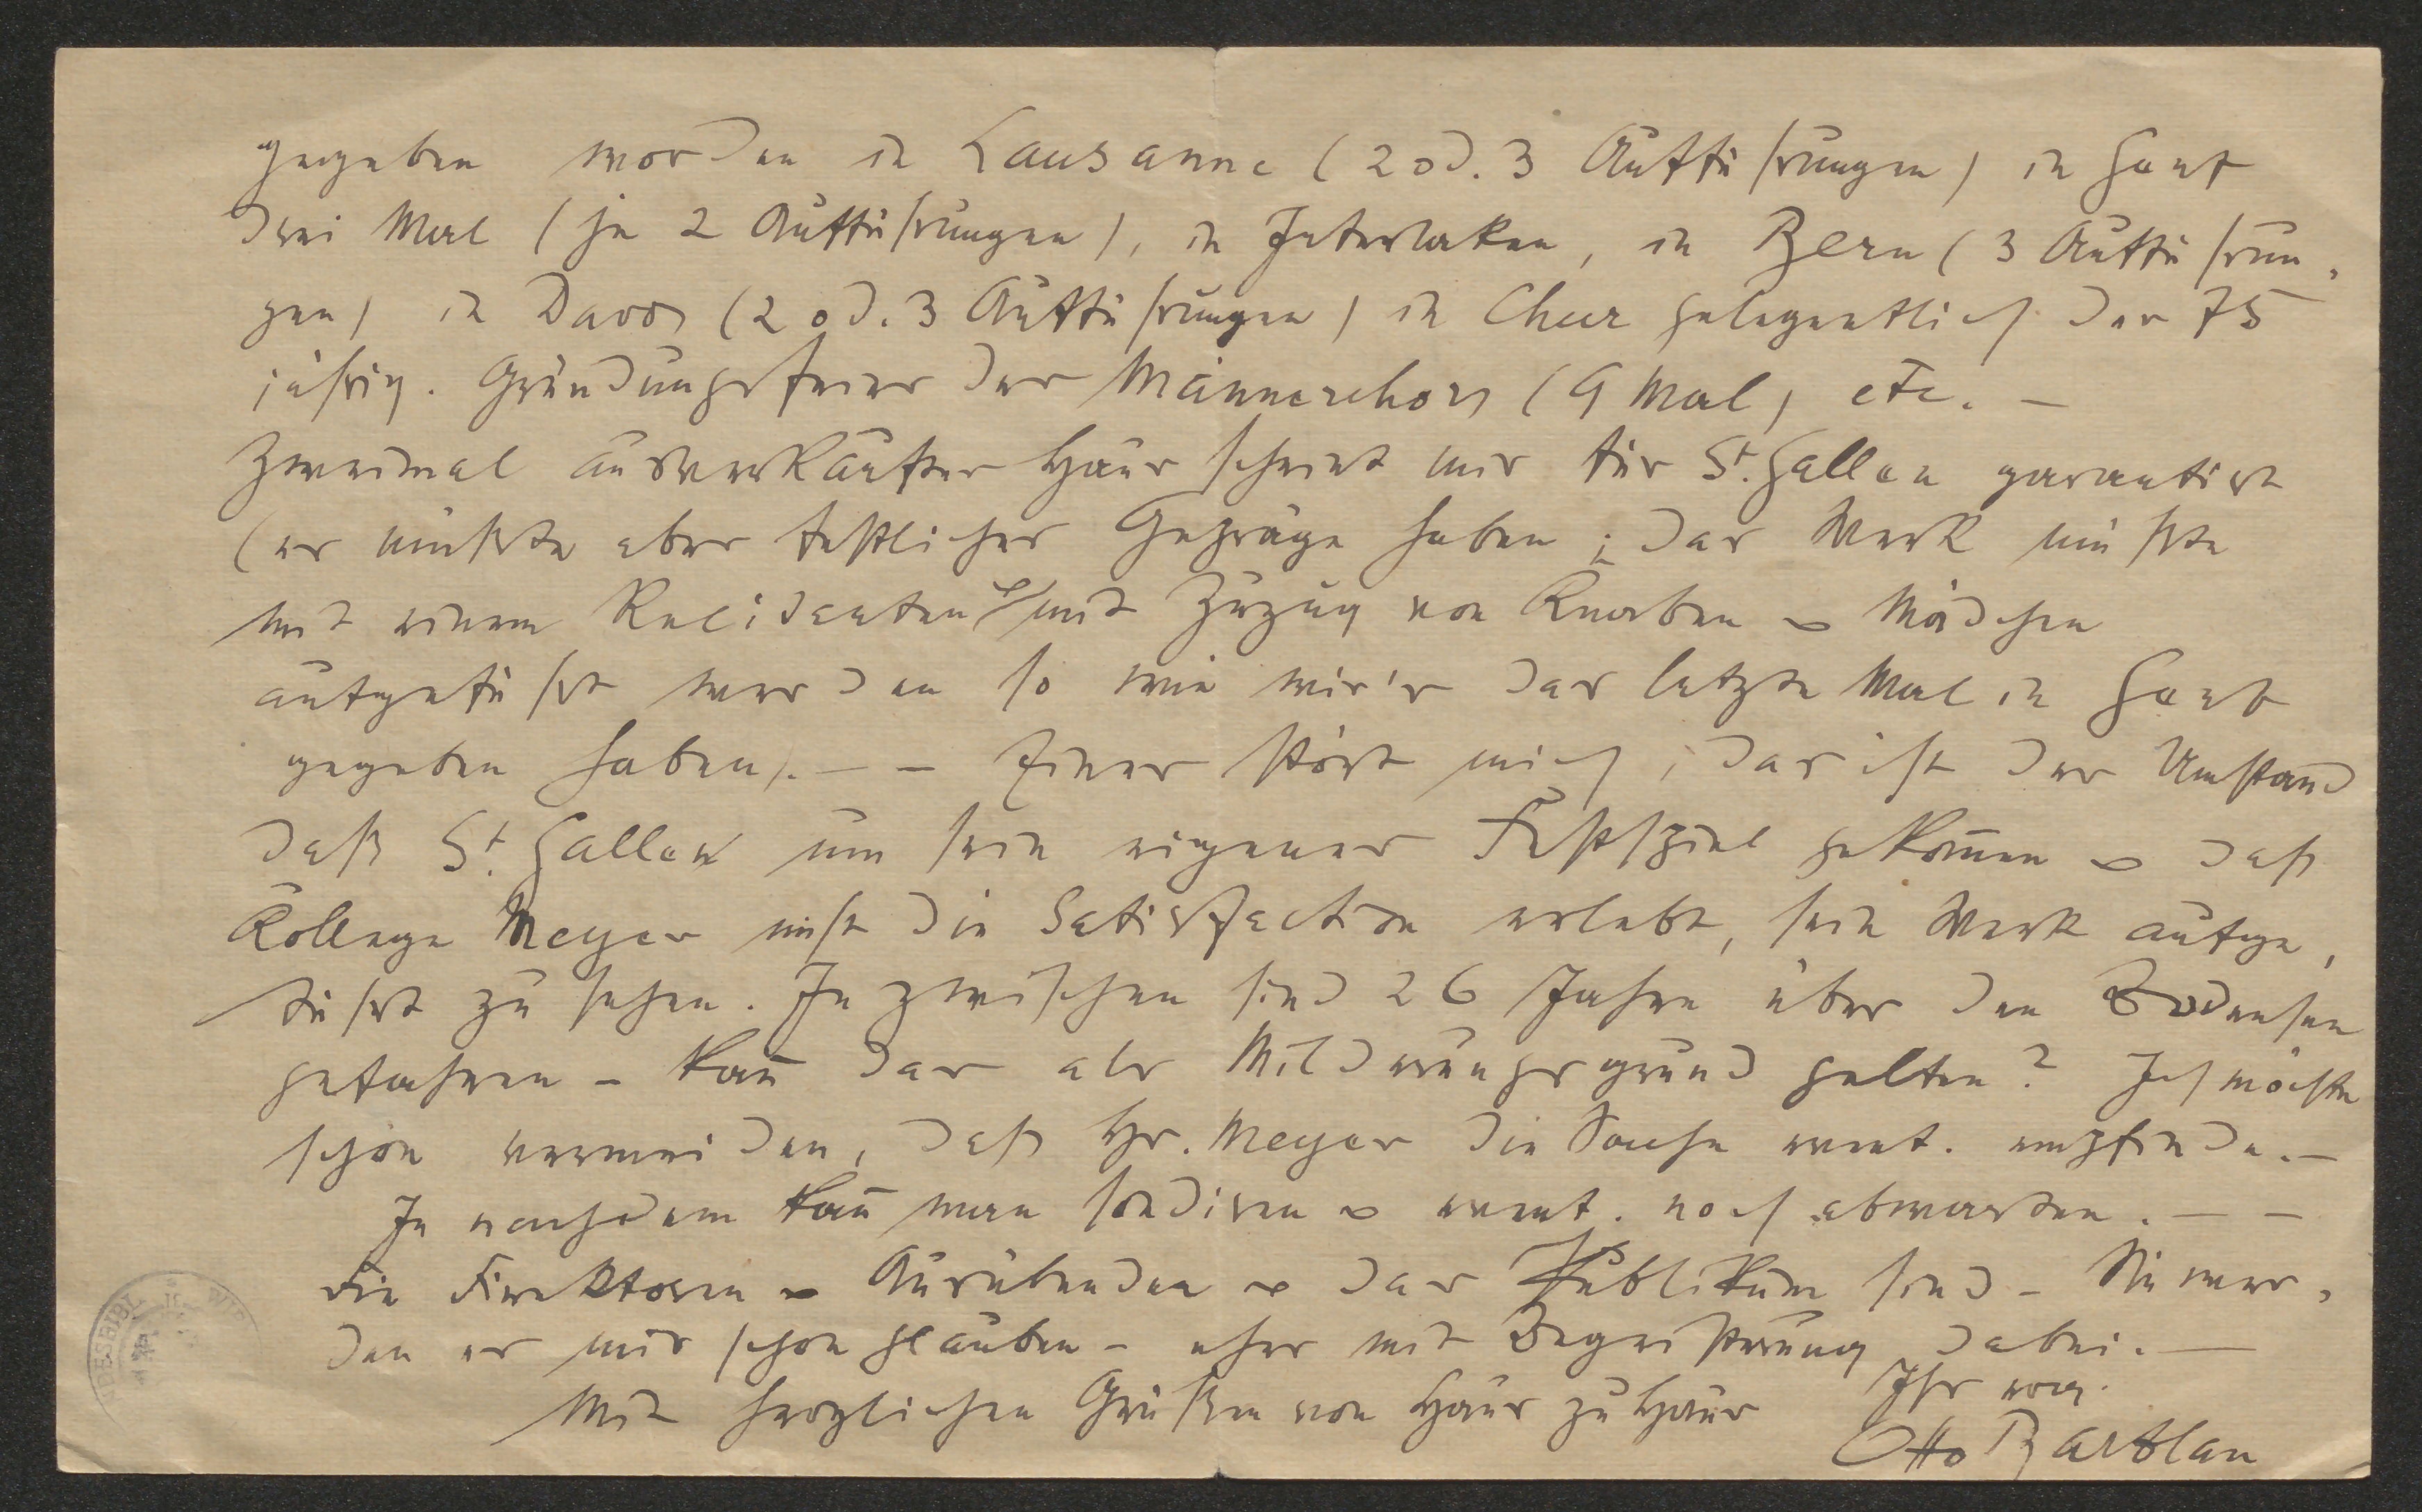 gegeben worden in Lausanne (2 od. 3 Aufführungen) in Genf
drei Mal (je 2 Aufführungen), in Interlaken, in Bern (3 Aufführun-
gen) in Davos (2 od. 3 Aufführungen) in Chur gelegentlich der 75
jährig. Gründungsfeier des Männerchors (9 Mal) etc. —
Zweimal ausverkauftes Haus scheint mir für St. Gallen garantirt
(es müßte aber festliches Gepräge haben; das Werk müßte
mit einem Recidenten mit Zuzug von Knaben & Mädchen
aufgeführt werden so wie wir's das letzte Mal in Genf
gegeben haben). — — Eines stört mich, das ist der Umstand
daß St. Gallen um sein eigenes Festspiel gekom̄en & daß
Kollege Meyer nicht die Satisfaction erlebt, sein Werk aufge-
führt zu sehen. Inzwischen sind 26 Jahre über den Bodensee
gefahren — kan̄ das als Milderungsgrund gelten? Ich möchte
schon vermeiden, daß Hr. Meyer die Sache event. empfinde. —
Je nachdem kan̄ man sondiren & event. noch abwarten. — —
Die Direktoren & Ausübenden & das Publikum sind — Sie wer-
den es mir schon glauben — eher mit Begeisterung dabei. —
Mit herzlichen Grüßen von Haus zu Haus Ihr erg.
Otto Barblan